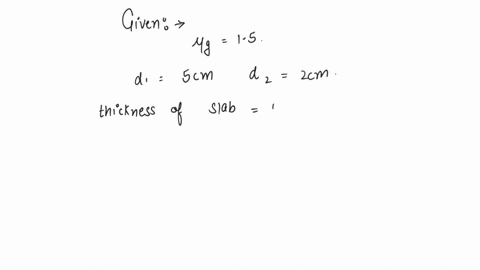 Given:→
μg = 1.5.
d1 = 5cm d2 = 2cm.
thickness of slab =